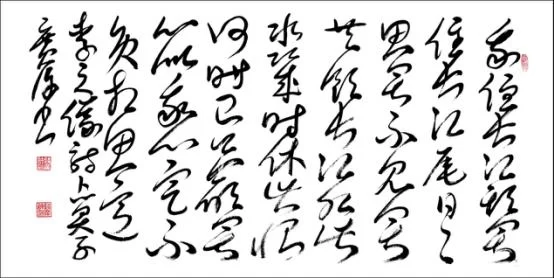 我住长江頭君
住长江尾日々
思君不见君
共飲长江水此
水幾时休此恨
何时已只願君
心似我心定不
負相思意
李之儀詩卜算子
书